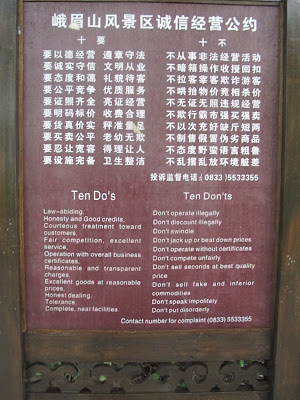 峨眉山风景区诚信经营公约
十要
要以德经营 遵章守法
要诚实守信 文明从业
要态度和蔼 礼貌待客
要公平竞争 优质服务
要证照齐全 亮证经营
要明码标价 收费合理
要货真价实 秤准量足
要买卖公平 老幼无欺
要忍让宽容 得理让人
要设施完备 卫生整洁
十不
不从事非法经营活动
不暗箱操作收授回扣
不拉客宰客欺诈游客
不哄抬物价竞相杀价
不无证无照违规经营
不欺行霸市强买强卖
不以次充好缺斤短两
不制售假冒伪劣商品
不态度野蛮语言粗鲁
不乱摆乱放环境脏差
投诉监督电话:(0833)5533355
Ten Do's
Law-abiding.
Honesty and Good credits.
Courteous treatment toward
customers.
Fair competition, excellent
service.
Operation with overall business
certificates.
Reasonable and transparent
charges.
Excellent goods at reasonable
prices.
Honest dealing.
Tolerance.
Complete, neat facilities.
Ten Don'ts
Don't operate illegally
Don't discount illegally
Don't swindle
Don't jack up or beat down prices
Don't operate without certificates
Don't compete unfairly
Don't sell seconds at best quality
price
Don't sell fake and inferior
commodities
Don't speak impolitely
Don't put disorderly
Contact number for complaint (0833) 5533355